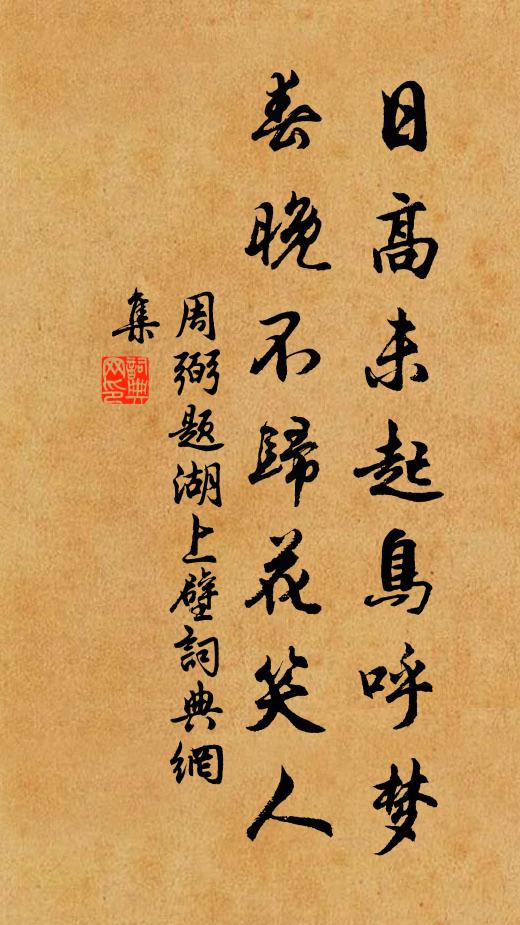 日高未起鳥呼梦
春晚不歸花笑人
周弼題湖上壁詞典網
集
詞典网印